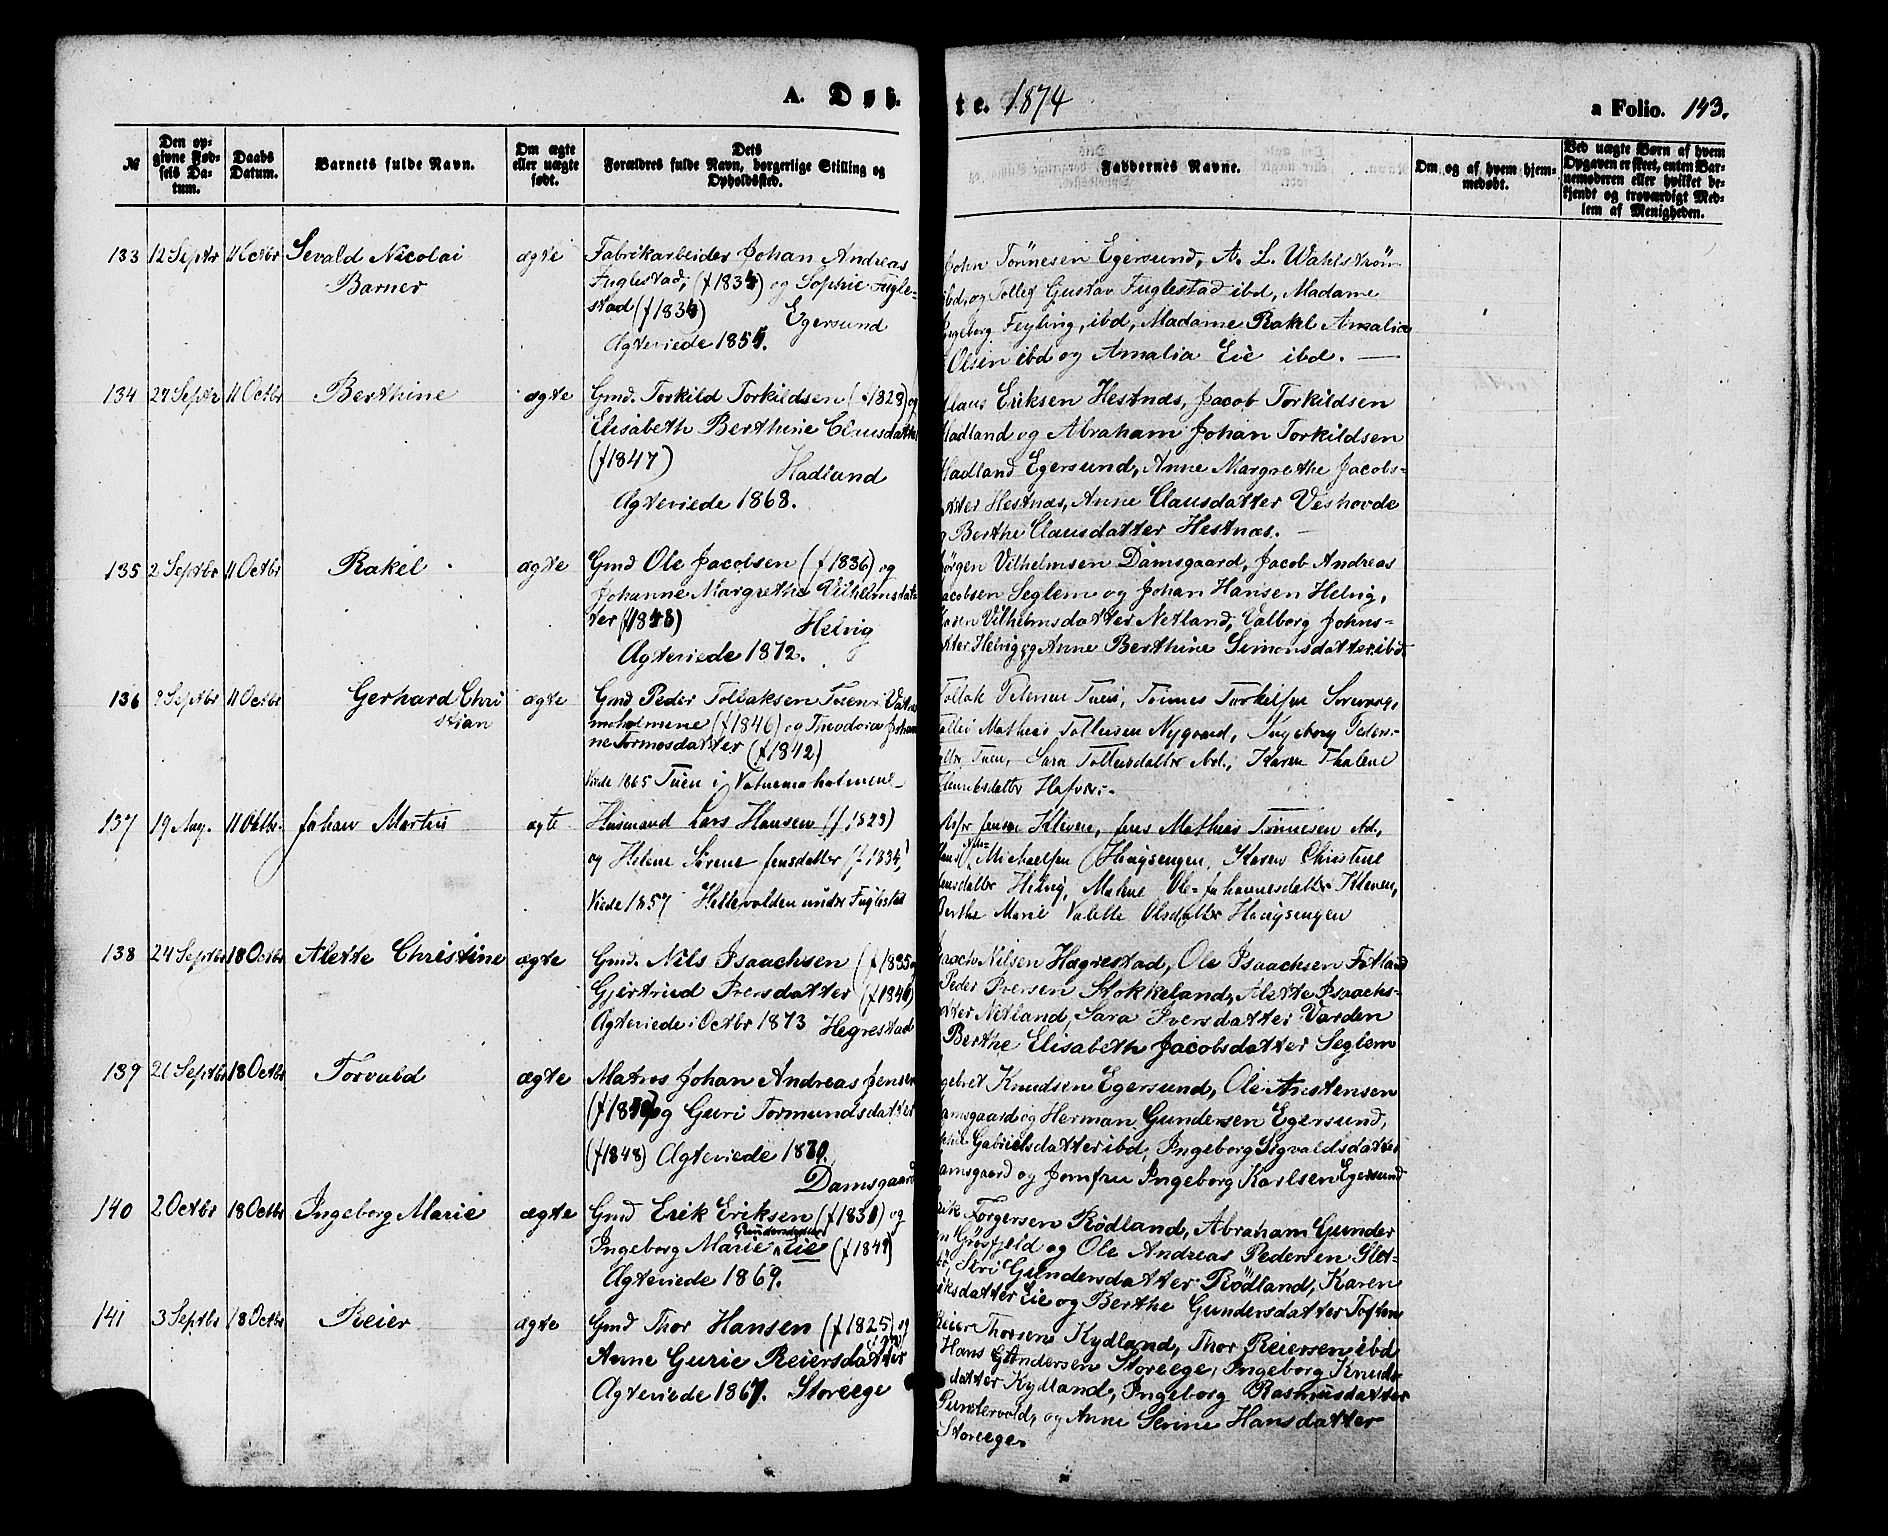 A. Døbte. 1874
a Folio. 143.
№
Den opgivne Fødsels Datum.
Daabs Datum.
Barnets fulde Navn.
Om ægte eller uægte født.
Dets Forældres fulde Navn, borgerlige Stilling og Opholdssted.
Faddernes Navne.
Om og af hvem hjemmedøbt.
Ved uægte Børn af hvem Opgaven er skeet, enten Barnemoderen eller hvilket bekjendt og troværdigt Medlem af Menigheden.
133 12 Septbr 11 Octbr Sevald Nicolai
Barner
ægte
Fabrikarbeider Johan Andreas
Fuglestad, (f 1834) og Sophie Fugle-
stad (f 1834) Egersund
Ægteviede 1854.
John Tönnesen Egersund, A. L. Wahlström
ibd, og Tollef Gustav Fuglestad ibd, Madame
Ingeborg Feyling, ibd, Madame Rakel Amalia
Olsen ibd og Amalia Eie ibd.
134 27 Septbr 11 Octbr Berthine ægte
Gmd. Torkild Torkildsen (f 1828) og
Elisabeth Berthine Clausdatter
(f 1847) Hadland
Ægteviede 1868.
Claus Eriksen Hestnæs, Jacob Torkildsen
Hadland og Abraham Johan Torkildsen
Hadland Egersund, Anne Margrethe Jacobs-
datter Hestnæs, Anne Clausdatter Veshovde
og Berthe Clausdatter Hestnæs.
135 2 Septbr 11 Octbr Rakel ægte
Gmd Ole Jacobsen (f 1836) og
Johanne Margrethe Vilhelmsdat-
ter (f 1848) Helvig
Ægteviede 1872.
Jörgen Vilhelmsen Damsgaard, Jacob Andreas
Jacobsen Seglem og Johan Hansen Helvig,
Karen Vilhelmsdatter Netland, Valborg Johns-
datter Helvig og Anne Berthine Simonsdatter ibd.
136 9 Septbr 11 Octbr Gerhard Chri
stian
ægte
Gmd Peder Tollaksen Tuen i Vatne
moholmene (f 1846) og Theodora Johan
ne Tormosdatter (f 1842)
Viede 1865 Tuen i Vatnemoholmene
Tollak Pedersen Tuen, Tönnes Torkelsen
Mathias Tollersen Nygaard, Ingeborg Peders-
datter Tuen, Sara Tollevsdatter ibd., Karen Thalene
Henriksdatter
137 19 Aug. 11 Octbr. Johan Martin ægte
Husmand Lars Hansen (f 1823)
og Helene Sörene Jensdatter (f 1834)
Viede 1857 Hellevolden under Fuglestad
Jensen Kleven, Jens Mathias Tönnesen ibd.,
Hans Michaelsen Haugsengen, Karen Christine
Jensdatter Helvig, Malene Ole-Johannesdatter Kleven,
Berthe Marie Valette Olsdatter Haugsengen
138 24 Septbr 18 Octbr Alette Christine ægte
Gmd. Nils Isaachsen (f 1835) og
Gjertrud Iversdatter (f 1840)
Ægteviede i Octbr 1873 Hegrestad
Isaach Nilsen Hægrestad, Ole Isaachsen Fotland
Peder Iversen Stokkeland, Alette Isaachs-
datter Netland, Sara Iversdatter Varden
Berthe Elisabeth Jacobsdatter Seglem
139 21 Septbr 18 Octbr Torvald ægte
Matros Johan Andreas Jensen
og Guri Tormundsdatter
(f 1848) Ægteviede 1870.
Damsgaard
Knudsen Egersund, Ole Aristensen
Damsgaard og Herman Gundersen Egersund,
Gabrielsdatter ibd, Ingeborg Sigvaldsdatter
Damsgaard og Jomfru Ingeborg Karlsen Egersund
140 2 Octbr 18 Octbr Ingeborg Marie ægte
Gmd Erik Eriksen (f 1830) og
Ingeborg Marie Gundersdatter Eie (f 1849)
Ægteviede 1869.
Erik Torgersen Rödland, Abraham Gunder
sen Grösfjeld og Ole Andreas Pedersen Slet-
tebö, Siri Gundersdatter Rödland, Karen
Eriksdatter Eie og Berthe Gundersdatter Toftene
141 3 Septbr 18 Octbr Reier ægte
Gmd Thor Hansen (f 1825) og
Anne Gurie Reiersdatter
Ægteviede 1867. Storeege
Reier Thorsen Kydland, Thor Reiersen ibd
Hans Gundersen Storeege, Ingeborg Knuds-
datter Kydland, Ingeborg Rasmusdatter
Puntervold, og Anne Serine Hansdatter
Storeege.